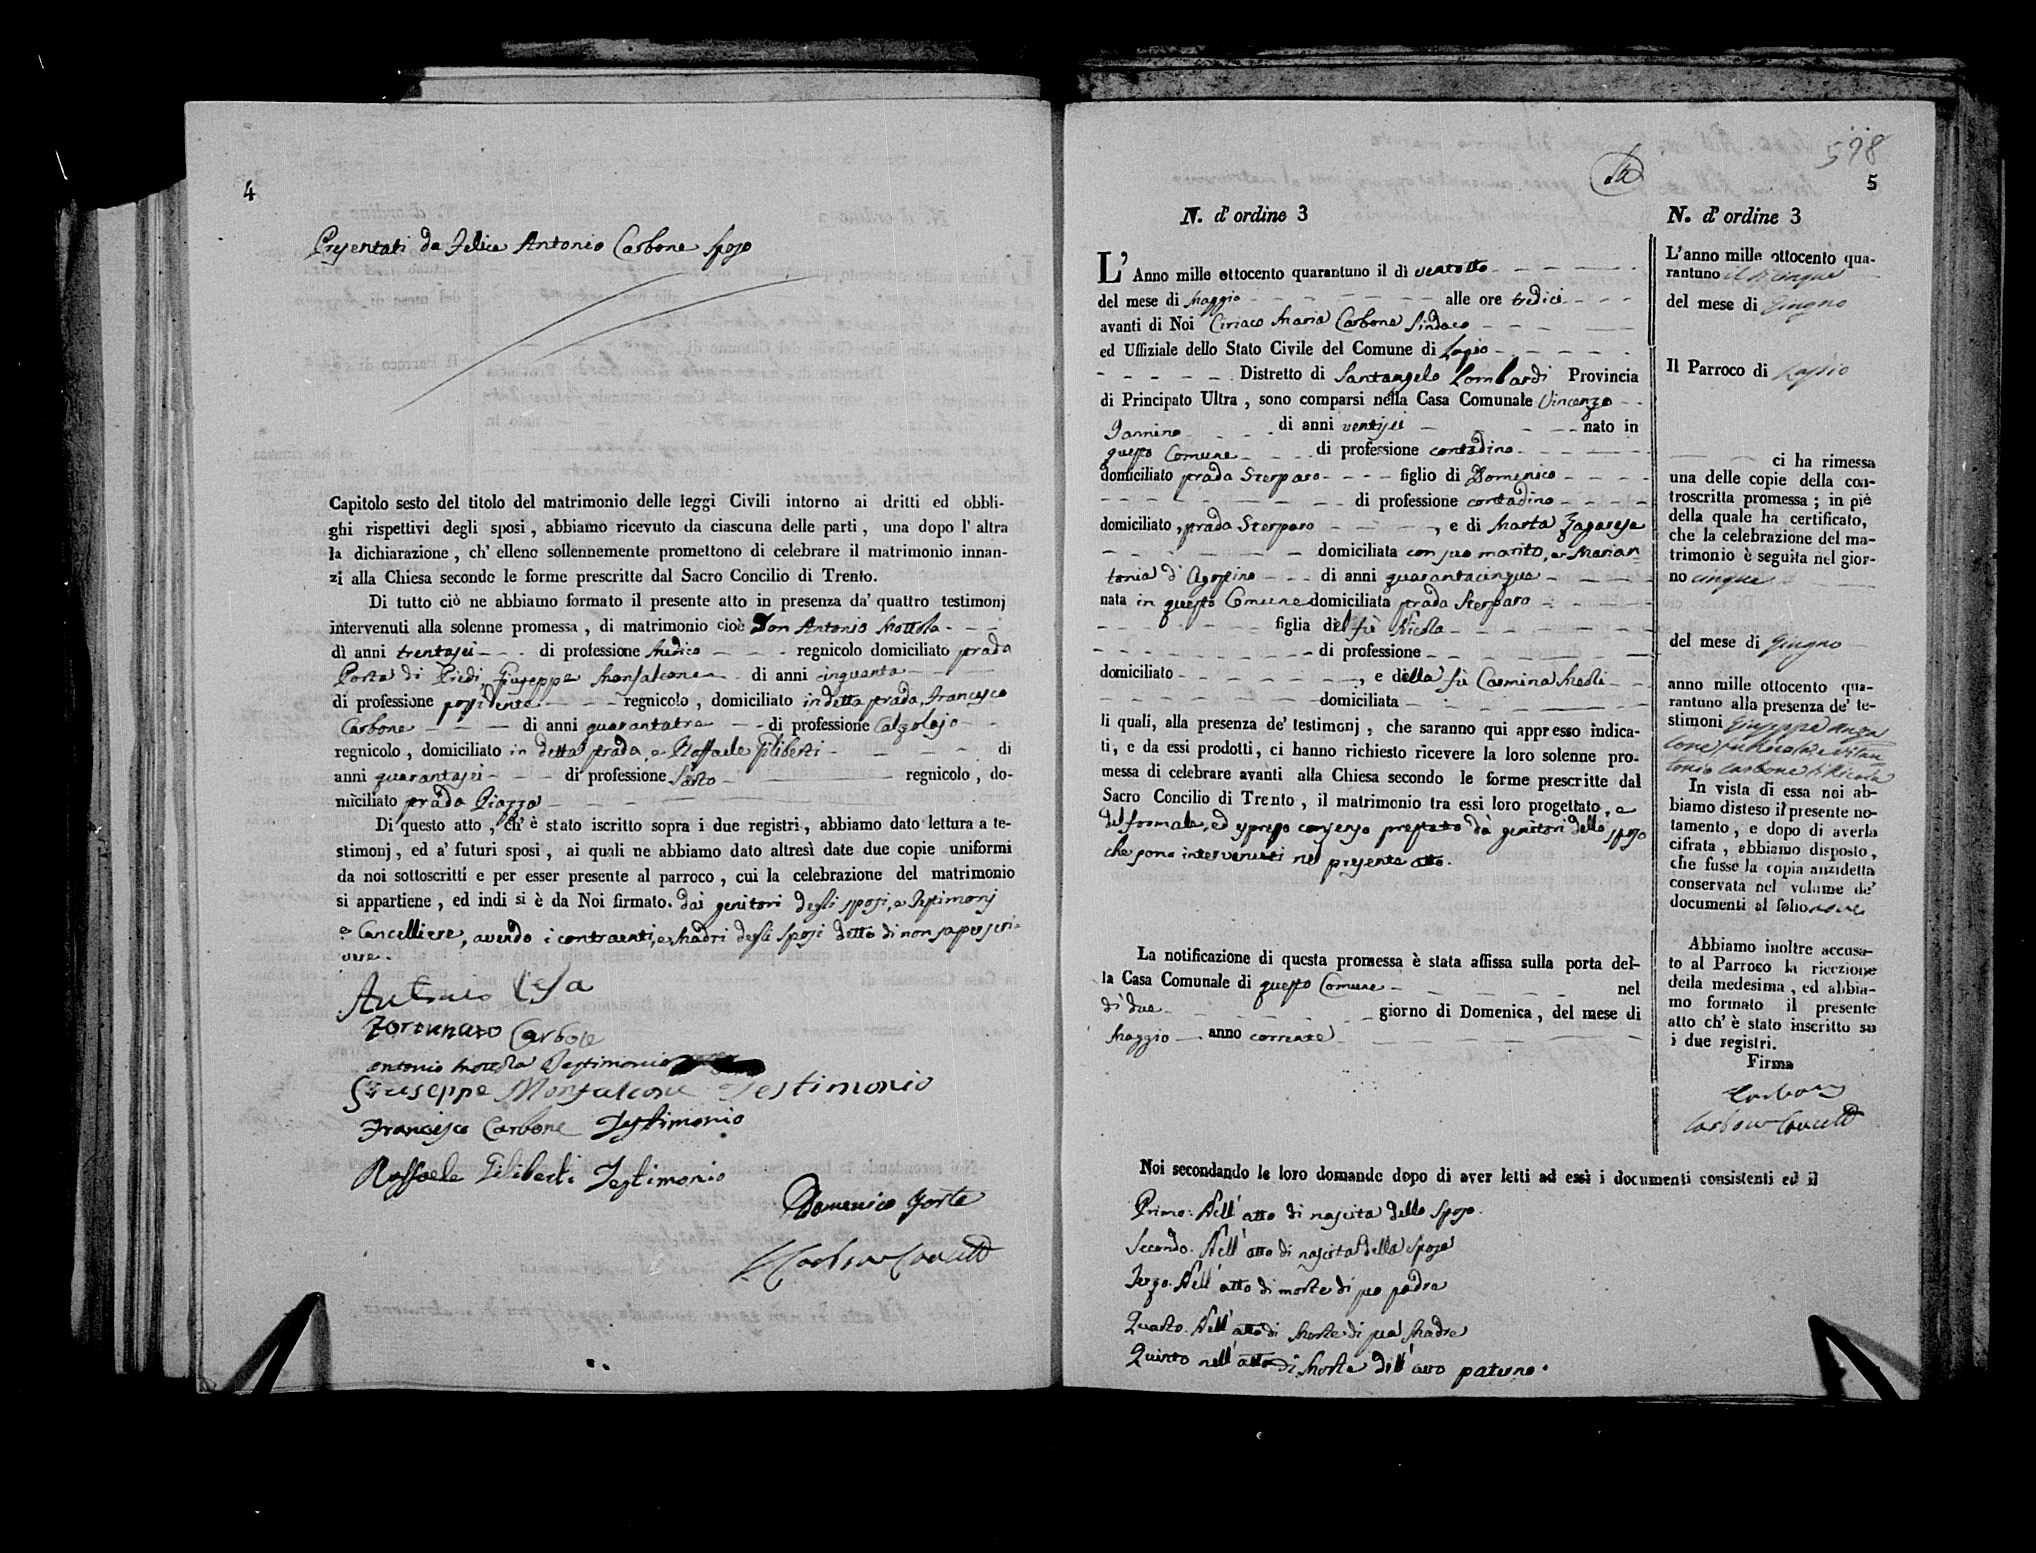 4
Presentati da Felice Antonio Carbone sposo
Capitolo sesto del titolo del matrimonio delle leggi Civili intorno ai dritti ed obbli-
ghi rispettivi degli sposi, abbiamo ricevuto da ciascuna delle parti, una dopo l'altra
la dichiarazione, ch'elleno sollennemente promettono di celebrare il matrimonio innan-
zi alla Chiesa secondo le forme prescritte dal Sacro Concilio di Trento.
Di tutto ciò ne abbiamo formato il presente atto in presenza da' quattro testimonj
intervenuti alla solenne promessa, di matrimonio cioè Don Antonio Mottola
di anni trentasei di professione Medico regnicolo domiciliato strada
Porta di Piedi, Giuseppe Monfalcone di anni cinquanta
di professione possidente regnicolo, domiciliato in detta strada, Francesco
Carbone di anni quarantatre di professione Calzolajo
regnicolo, domiciliato in detta strada, e Raffaele Filiberti di
anni quarantasei di professione Sarto regnicolo, do-
miciliato strada Piazza
Di questo atto, ch'è stato iscritto sopra i due registri, abbiamo dato lettura a te-
stimonj, ed a' futuri sposi, ai quali ne abbiamo dato altresì date due copie uniformi
da noi sottoscritti e per esser presente al parroco, cui la celebrazione del matrimonio
si appartiene, ed indi si è da Noi firmato. dai genitori degli sposi, e Testimonj
e Cancelliere, avendo i contraenti, e Madri degli Sposi detto di non saper scri-
vere.
Antonio
Fortunato Carbone
Antonio Mottola Testimonio
Giuseppe Monfalcone Testimonio
Francesco Carbone Testimonio
Raffaele Filiberti Testimonio
Domenico Forte
Carbone
598
5
N. d'ordine 3
L'Anno mille ottocento quarantuno il dì ventotto
del mese di Maggio alle ore tredici
avanti di Noi Ciriaco Maria Carbone Sindaco
ed Uffiziale dello Stato Civile del Comune di
Distretto di Santangelo Lombardi Provincia
di Principato Ultra, sono comparsi nella Casa Comunale Vincenzo
Jannino di anni ventisei nato in
questo Comune di professione contadino
domiciliato strada Sterparo figlio di Domenico
di professione contadino
domiciliato, strada Sterparo, e di Marta Zagarese
domiciliata con suo marito, e Marian
tonia d'Agostino di anni quarantacinque
nata in questo Comune domiciliata strada Sterparo
figlia del fù Nicola
di professione
domiciliato, e della fù Carmina Meoli
domiciliata
li quali, alla presenza de' testimonj, che saranno qui appresso indica-
ti, e da essi prodotti, ci hanno richiesto ricevere la loro solenne pro-
messa di celebrare avanti alla Chiesa secondo le forme prescritte dal
Sacro Concilio di Trento, il matrimonio tra essi loro progettato, e
del formale, ed espresso consenso prestato da' genitori dello sposo
che sono intervenuti nel presente atto.
La notificazione di questa promessa è stata affissa sulla porta del-
la Casa Comunale di questo Comune nel
dì due giorno di Domenica, del mese di
Maggio anno corrente
N. d'ordine 3
L'anno mille ottocento qua-
rantuno il dì cinque
del mese di Giugno
Il Parroco di
ci ha rimessa
una delle copie della con-
troscritta promessa; in piè
della quale ha certificato,
che la celebrazione del ma-
trimonio è seguita nel gior-
no cinque
del mese di Giugno
anno mille ottocento qua-
rantuno alla presenza de' te-
stimoni Giuseppe
e Vitan
tonio Carbone di Nicola
In vista di essa noi ab-
biamo disteso il presente no-
tamento, e dopo di averla
cifrata, abbiamo disposto,
che fusse la copia anzidetta
conservata nel volume de'
documenti al folio nove
Abbiamo inoltre accusa-
to al Parroco la ricezione
della medesima, ed abbia-
mo formato il presente
atto ch'è stato inscritto su
i due registri.
Firma
Carbone
Carbone
Noi secondando le loro domande dopo di aver letti ad essi i documenti consistenti ed il
Primo: Nell'atto di nascita dello sposo.
Secondo. Nell'atto di nascita della sposa
Terzo. Nell'atto di morte di suo padre
Quarto. Nell'atto di Morte di sua Madre
Quinto nell'atto di Morte dell'avo paterno.